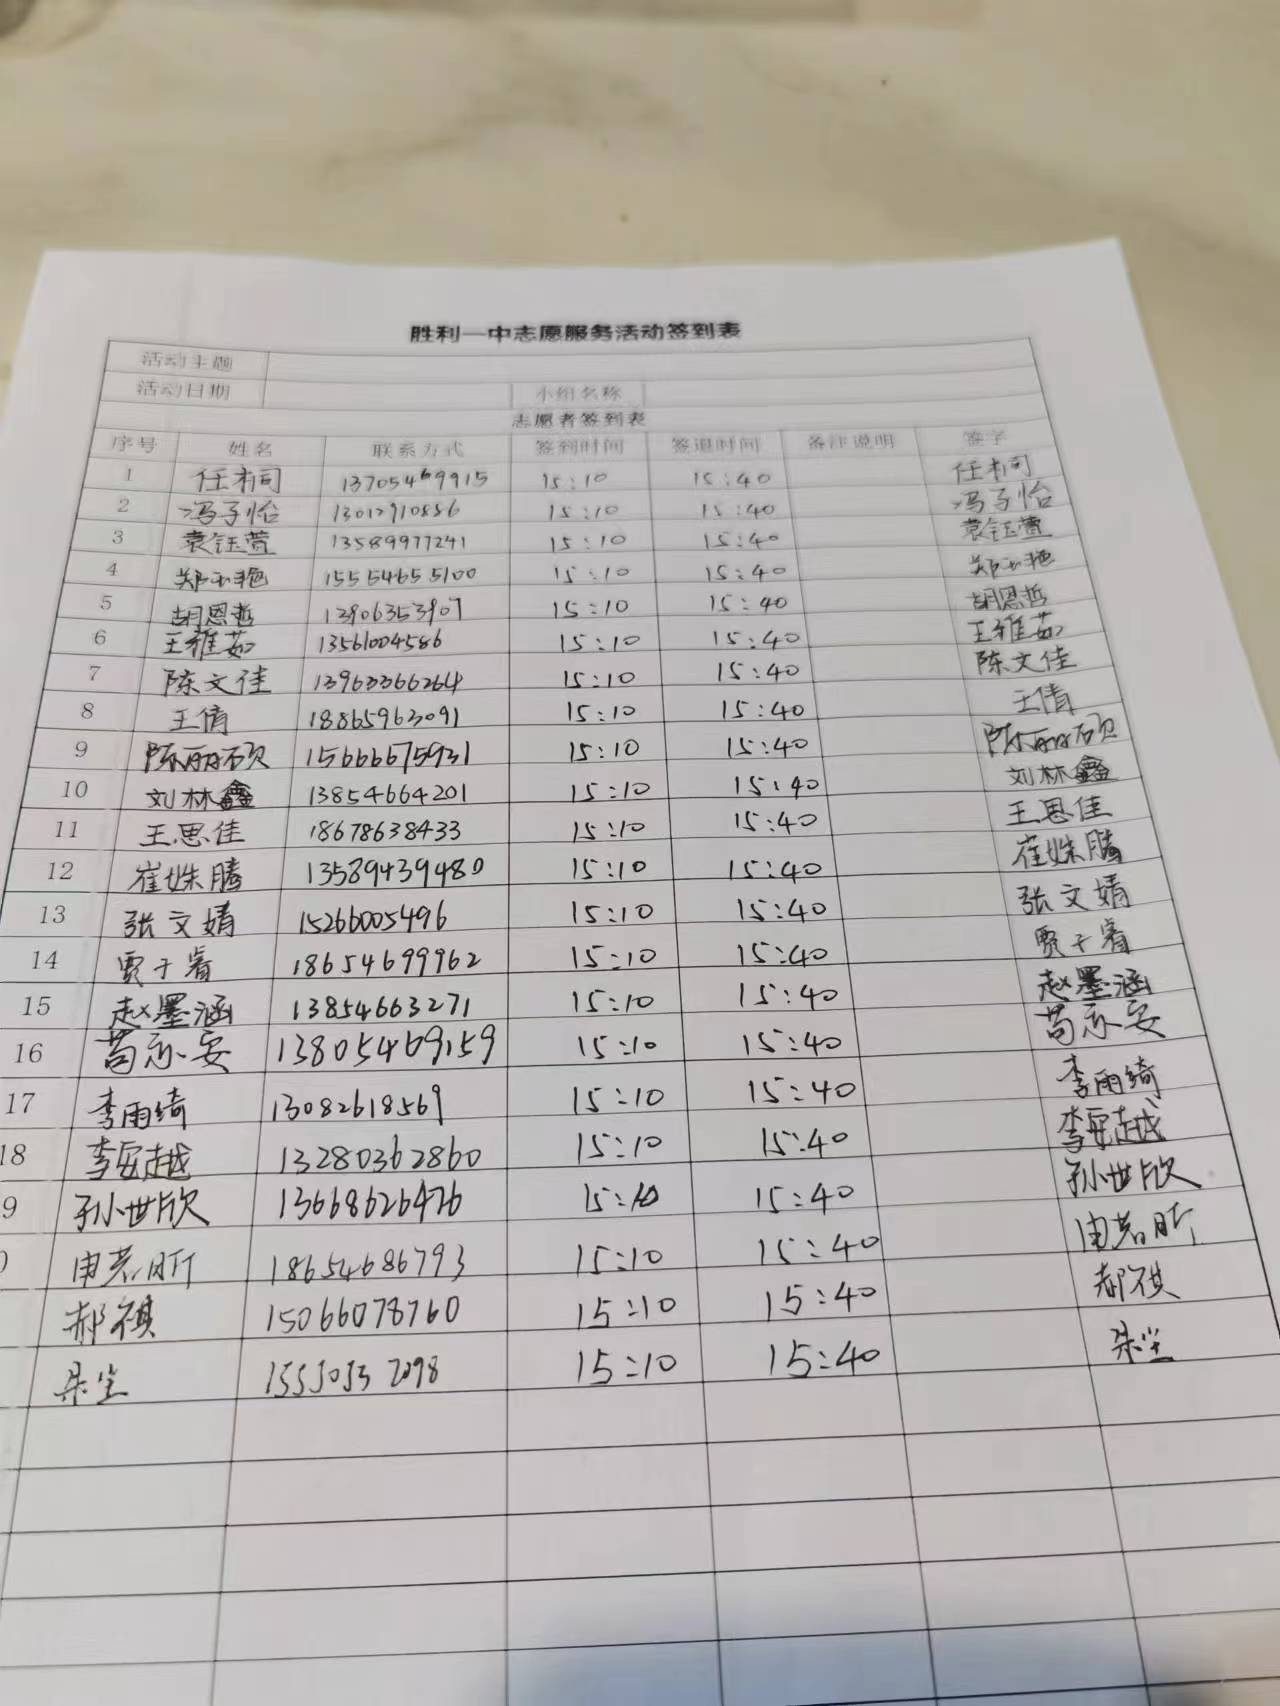 胜利一中志愿服务活动签到表
活动主题
活动日期 小组名称
志愿者签到表
序号 姓名 联系方式 签到时间 签退时间 备注说明 签字
1 任栩 13705469915 15:10 15:40 任栩
2 冯子怡 13012910856 15:10 15:40 冯子怡
3 袁钰萱 13589977241 15:10 15:40 袁钰萱
4 郑玉艳 15554655100 15:10 15:40 郑玉艳
5 胡恩哲 13906353907 15:10 15:40 胡恩哲
6 王雅茹 13561004586 15:10 15:40 王雅茹
7 陈文佳 13963366264 15:10 15:40 陈文佳
8 王倩 18865963091 15:10 15:40 王倩
9 陈丽硕 15666675931 15:10 15:40 陈丽硕
10 刘林鑫 13854664201 15:10 15:40 刘林鑫
11 王思佳 18678638433 15:10 15:40 王思佳
12 崔姝腾 13589439480 15:10 15:40 崔姝腾
13 张文婧 15266005496 15:10 15:40 张文婧
14 贾于睿 18654699962 15:10 15:40 贾于睿
15 赵墨涵 13854663271 15:10 15:40 赵墨涵
16 苟亦安 13805469159 15:10 15:40 苟亦安
17 李雨绮 13082618569 15:10 15:40 李雨绮
18 李安越 13280362860 15:10 15:40 李安越
9 孙世欣 13668626476 15:10 15:40 孙世欣
申若昕 18654686793 15:10 15:40 申若昕
郝祺 15066078760 15:10 15:40 郝祺
15:10 15:40